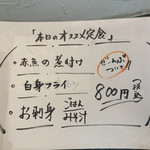 「本日のオススメ定食」
・赤魚の煮付け
・白身フライ
・お刺身
ぜーんぶ
ついて!
800円
税込
ごはん
みそ汁